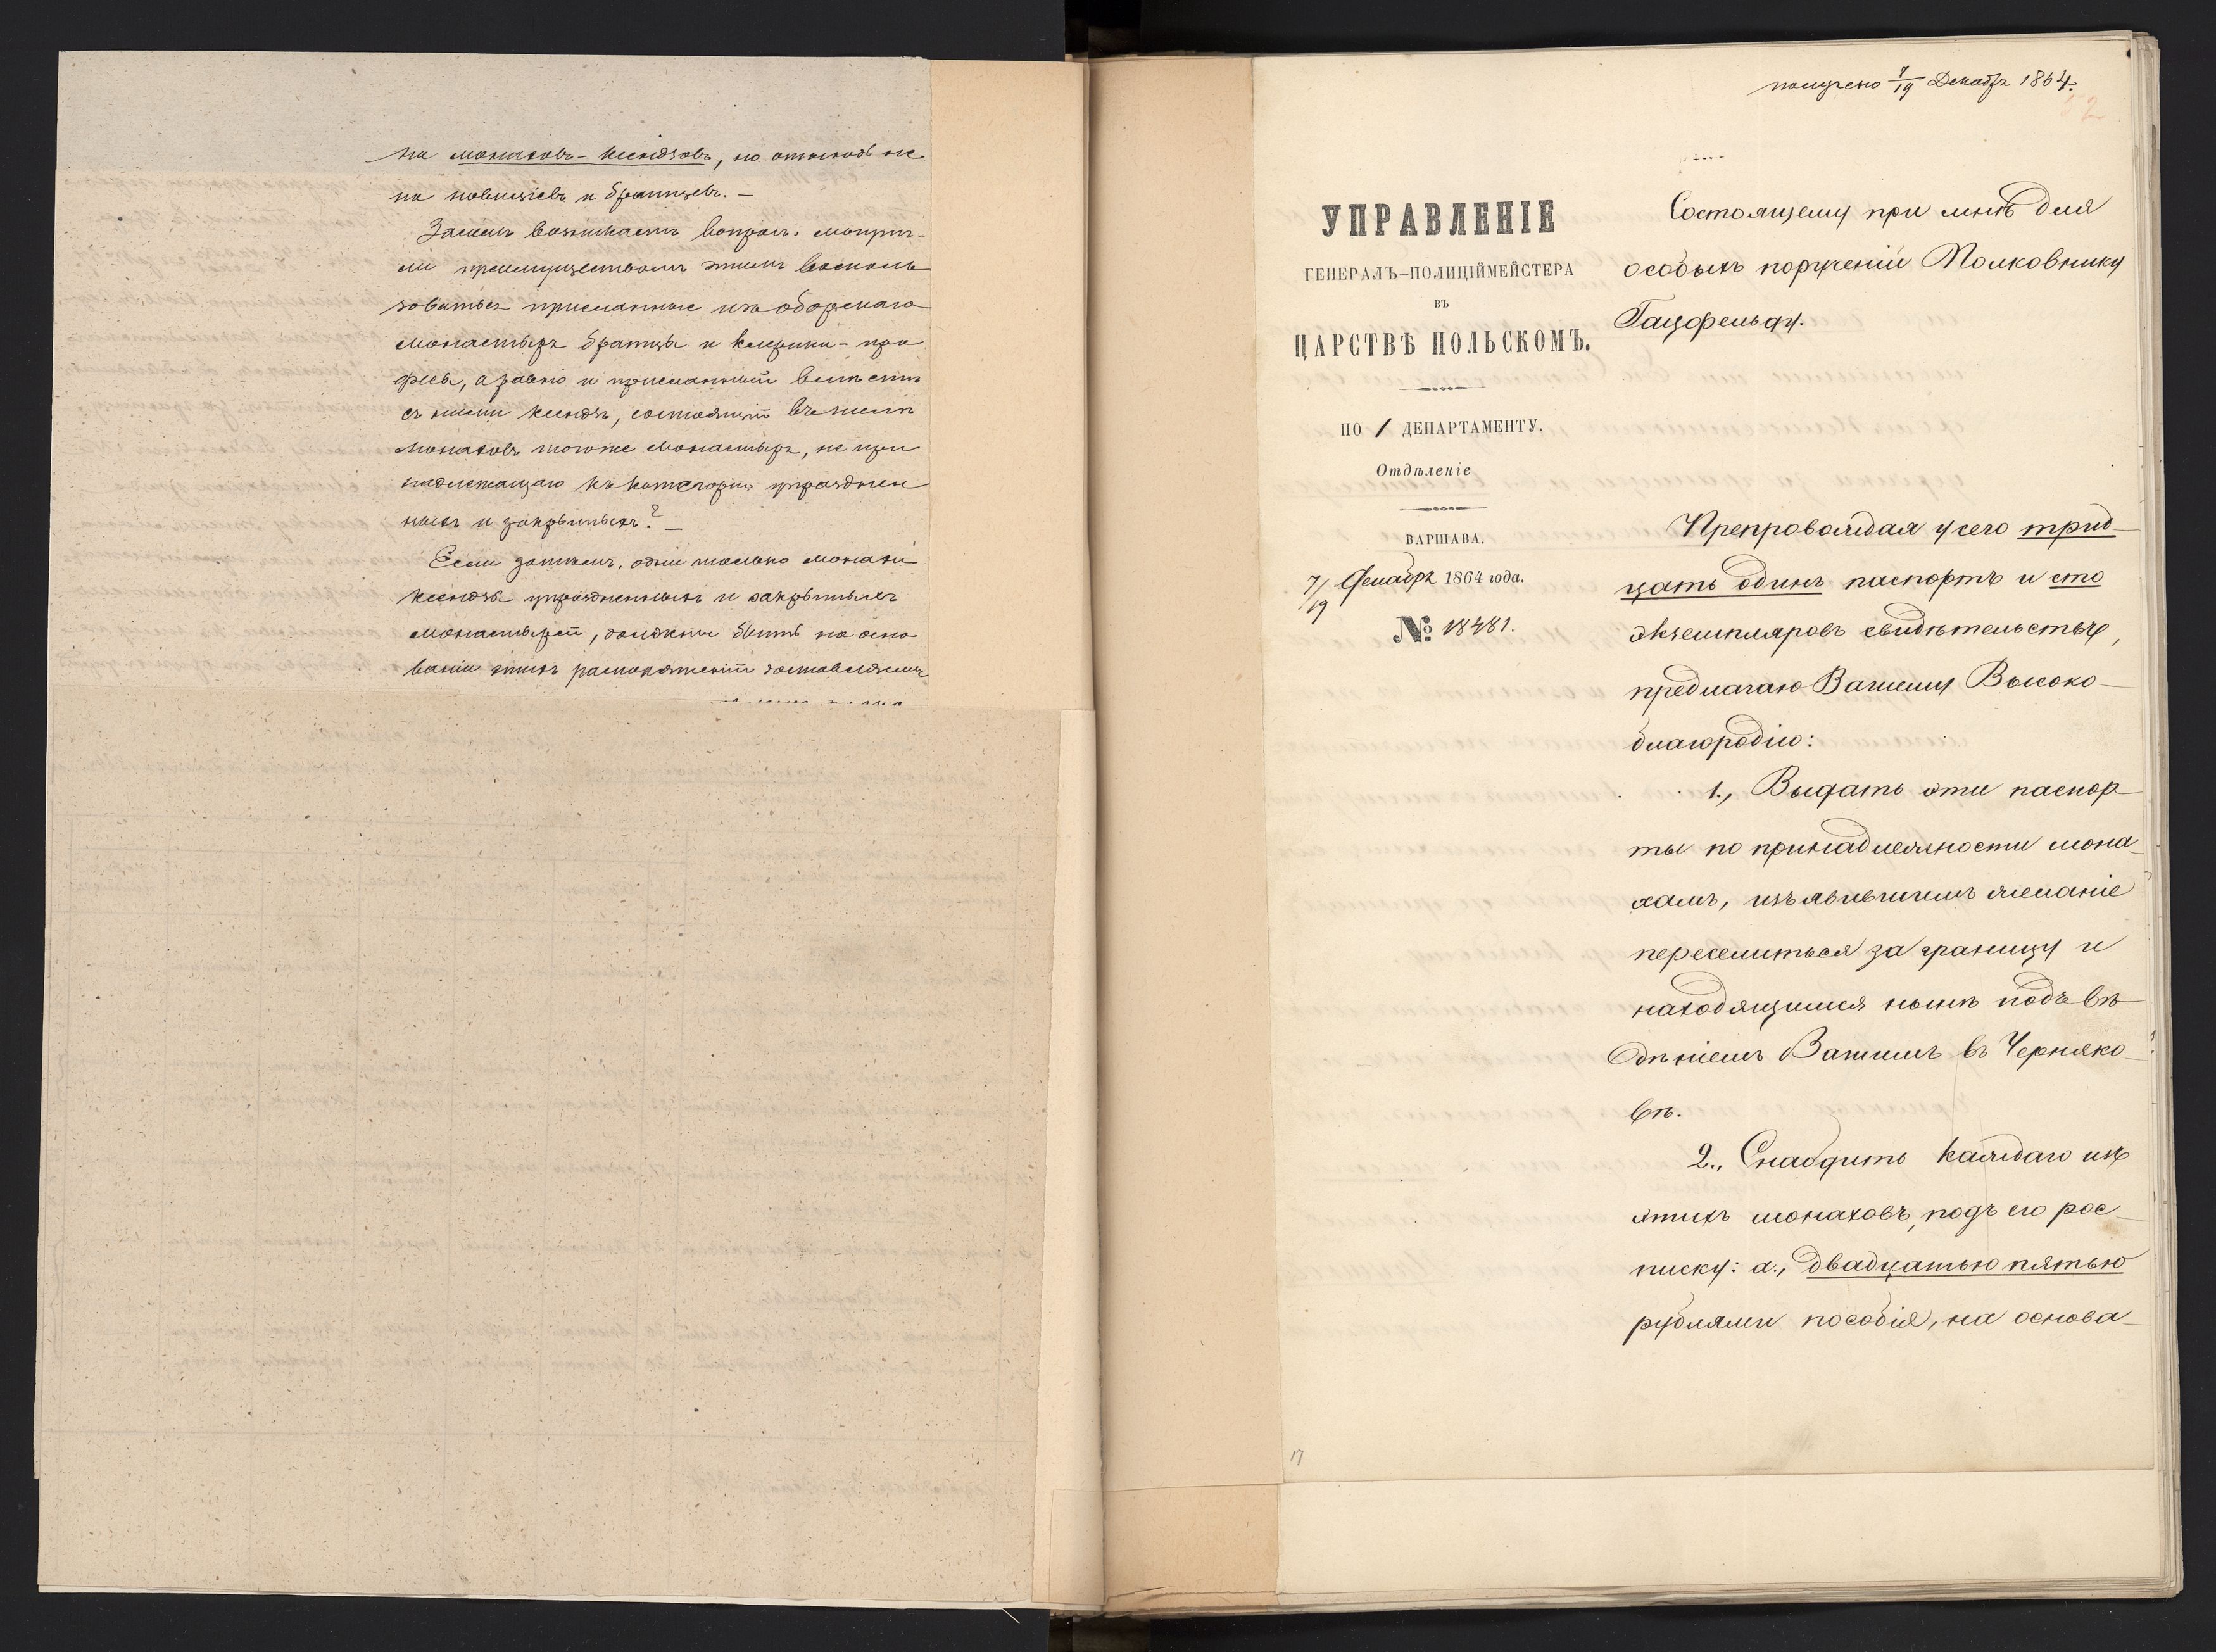 на монаховъ-ксендзовъ, но отнюдь не
на новиціевъ и братцевъ. —
Затемъ возникаетъ вопросъ: могутъ-
ли преимуществомъ этимъ восполь
зоваться присланные изъ оборскаго
монастыря братцы и клерики - про
фесы, а равно и присланный вместе
съ ними ксендзъ, состоящій въ числе
монаховъ тогоже монастыря, не при
надлежащаго къ категоріи упразднен
ныхъ и закрытыхъ? —
Если затемъ, одни только монахи
ксендзы упраздненныхъ и закрытыхъ
монастырей, должны быть на осно
ваніи этихъ распоряженій
получено 7/19 Декабря 1864.
52
УПРАВЛЕНІЕ
ГЕНЕРАЛЪ-ПОЛИЦІЙМЕЙСТЕРА
ВЪ
ЦАРСТВѢ ПОЛЬСКОМЪ.
ПО 1 ДЕПАРТАМЕНТУ.
Отдѣленіе
ВАРШАВА.
7/19 Декабря 1864 года.
№ 18481.
Состоящему при мнѣ для
особыхъ порученій Полковнику
Гацфельду.
Препровождая у сего трид-
цать одинъ паспортъ и сто
экземпляровъ свидѣтельствъ,
предлагаю Вашему Высоко-
благородію:
1., Выдать эти паспор
ты по принадлежности мона-
хамъ, изъявившимъ желаніе
переселиться за границу и
находящимися нынѣ подъ вѣ-
дѣніемъ Вашимъ въ Черняко-
вѣ.
2., Снабдить каждаго изъ
этихъ монаховъ, подъ его рос-
писку: а., двадцатью пятью
рублями пособія, на основа-
17